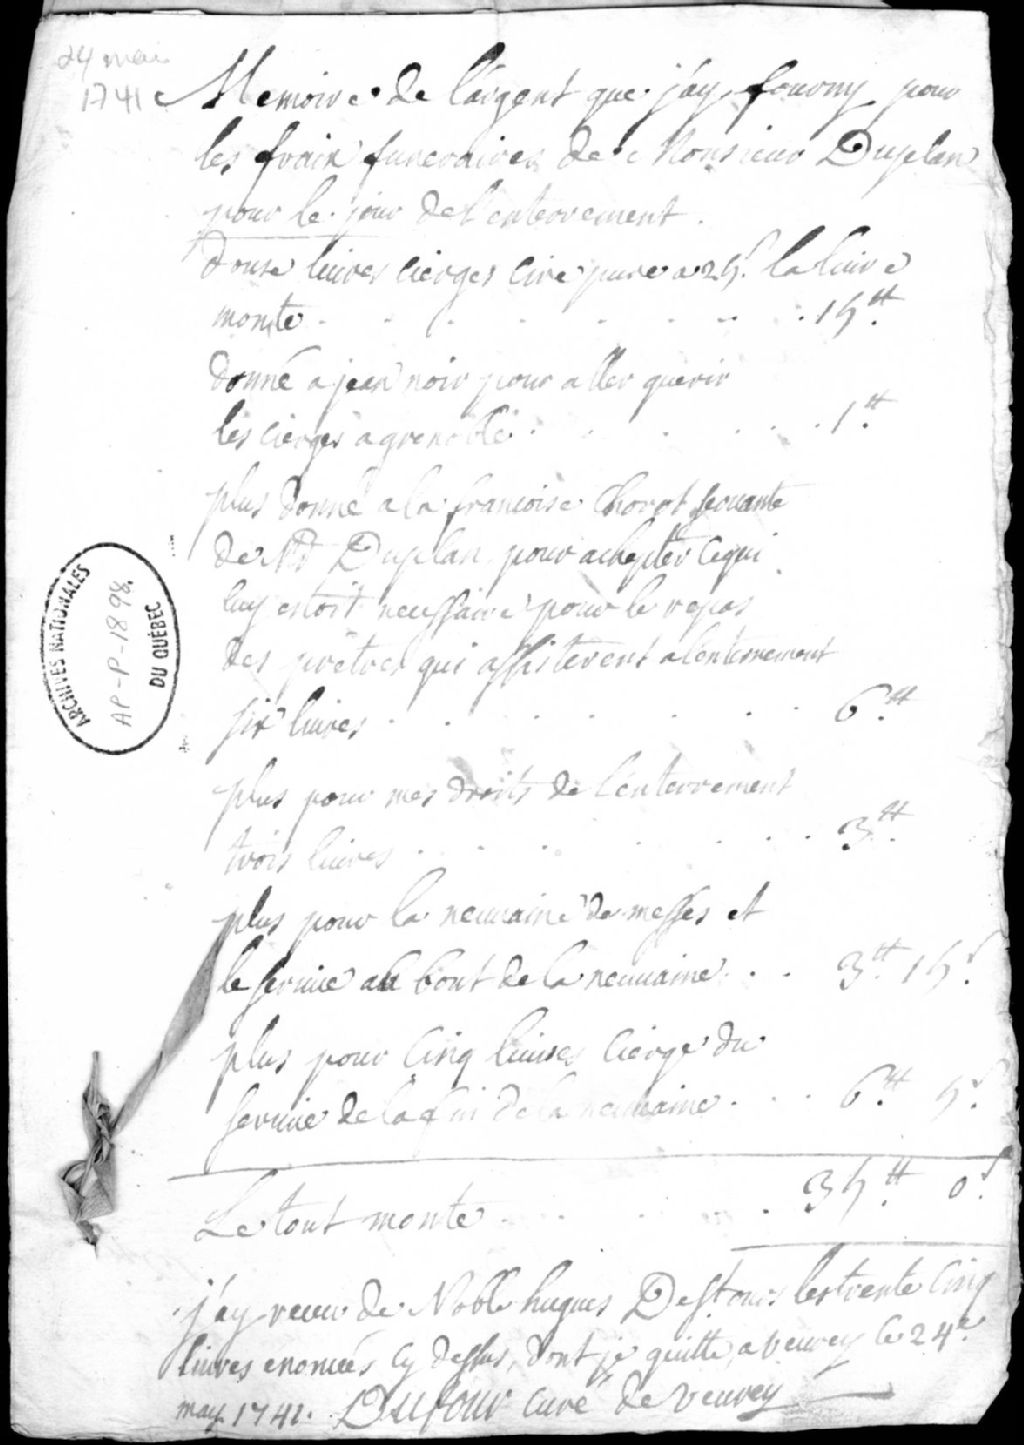 24 mai
1741
Memoire de l'argent que j'ay fourny pour
les fraix funeraires de Monsieur Duplan
pour le jour de l'enterrement.
douse livres cierges cire pure a 25s la livre
monte . . . . . . . . 15tt
donné a jean noir pour aller querir
les cierges a grenoble . . . . . 1tt
plus donné a la francoise Chorot servante
de Mr Duplan pour achepter ce qui
luy estoit necessaire pour le repas
des prêtres qui assisterent a l'enterrement
six livres . . . . . . . 6tt
plus pour mes droits de l'enterrement
trois livres . . . . . . 3tt
plus pour la neuvaine de messes et
le service au bout de la neuvaine . . . 3tt 15s
plus pour cinq livres cierge du
service de la fin de la neuvaine . . . 6tt 5s
Le tout monte . . . . . 35tt 0s
j'ay receu de Noble hugues Destours les trente cinq
livres enoncées cy dessus, dont je quitte, a veurey ce 24e
may 1741. Dufour curé de veurey
ARCHIVES NATIONALES
AP-P-1898
DU QUÉBEC